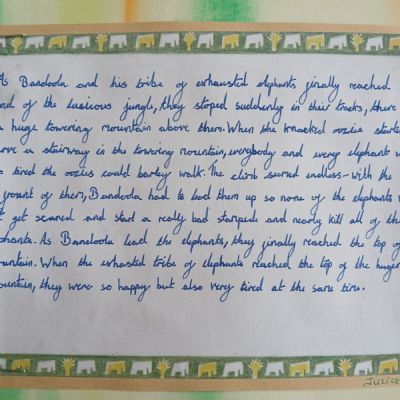 As Bandoola and his tribe of exhausted elephants finally reached
end of the luscious jungle, they stoped suddenly in their tracks, there
a huge towering mountain above them. When the knacked oozies starte
arve a stairway in the towering mountain, everybody and every elephant w
so tired the oozies could barley walk. The climb seemed endless - with the
front of them, Bandoola had to lead them up so none of the elephants w
get scared and start a really bad stampede and nearly kill all of the
phants. As Bandoola lead the elephants, they finally reached the top of
mountain. When the exhasted tribe of elephants reached the top of the huge
ountain, they were so happy but also very tired at the same time.
Juliet